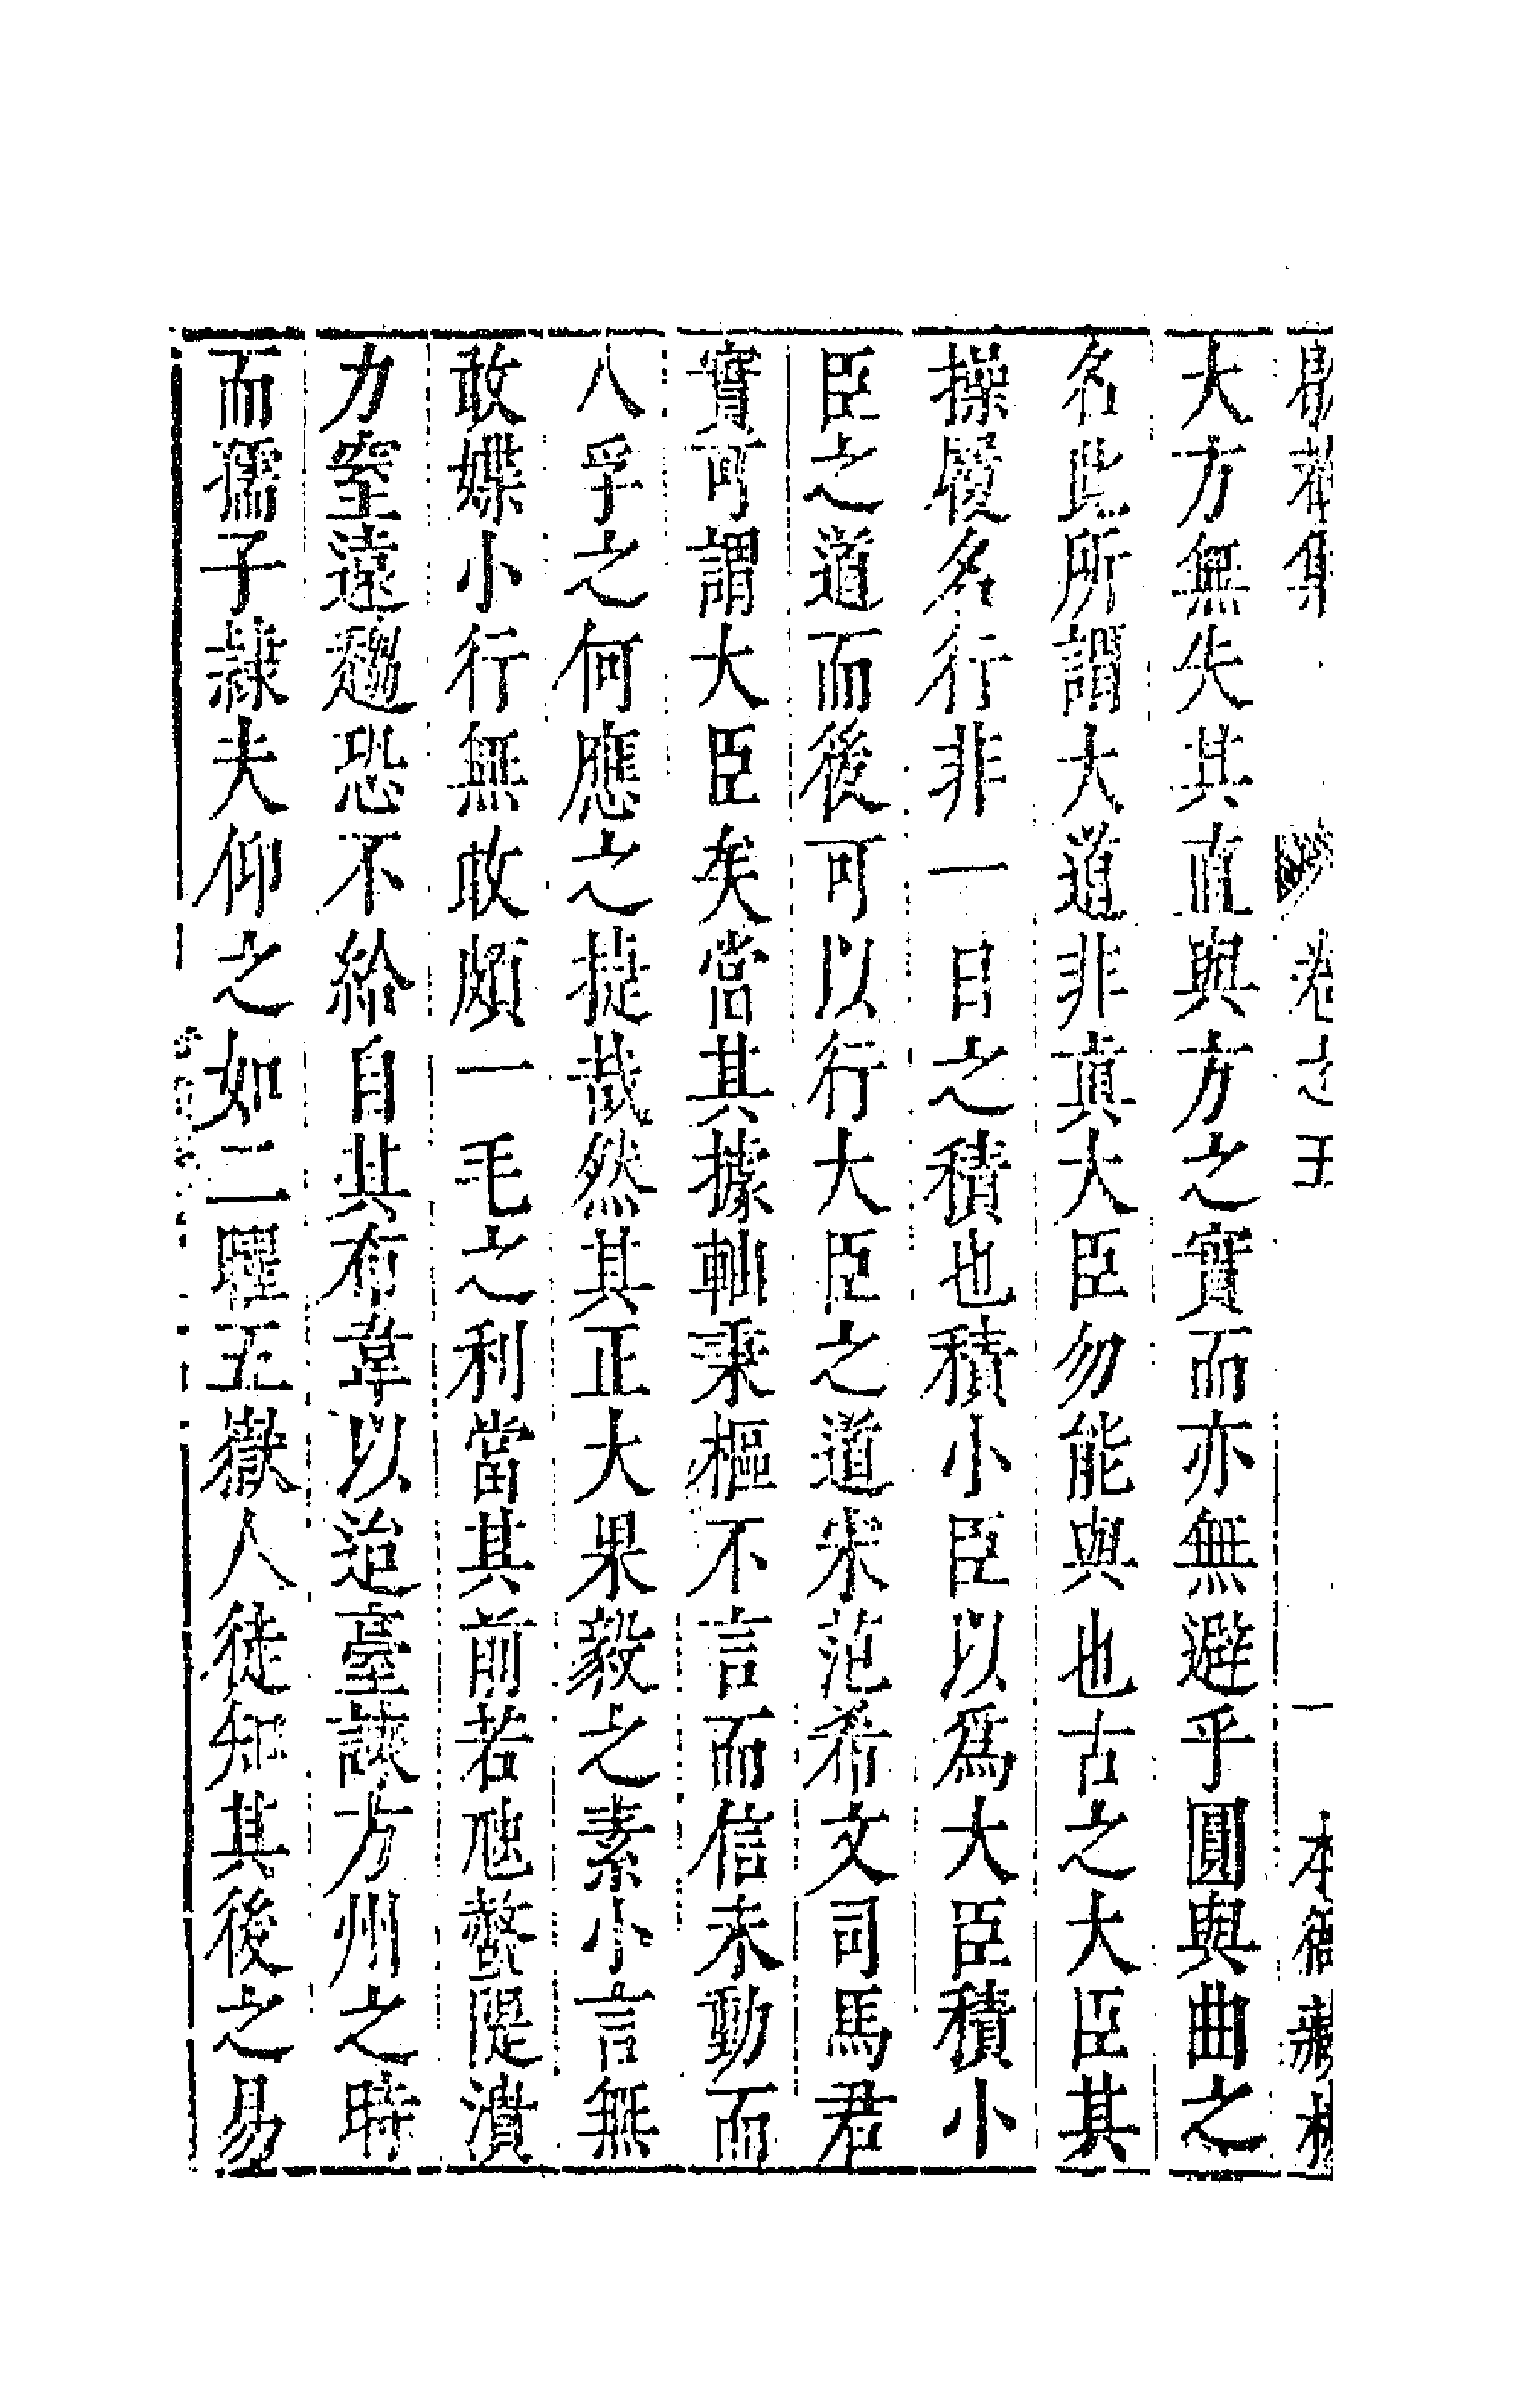 集 卷之五 一 本衙藏板
大方無失其直與方之實而亦無避乎圓與曲之
名此所謂大道非真大臣勿能與也古之大臣其
操履名行非一日之積也積小臣以爲大臣積小
臣之道而後可以行大臣之道宋范希文司馬君
實可謂大臣矣當其據軸秉樞不言而信未動而
人孚之何應之捷哉然其正大果毅之素小言無
敢媟小行無敢頗一毛之利當其前若虺螫隄潰
力窒遠趨恐不給自其布韋以迨臺諫方州之時
而孺子隸夫仰之如二曜五嶽人徒知其後之易